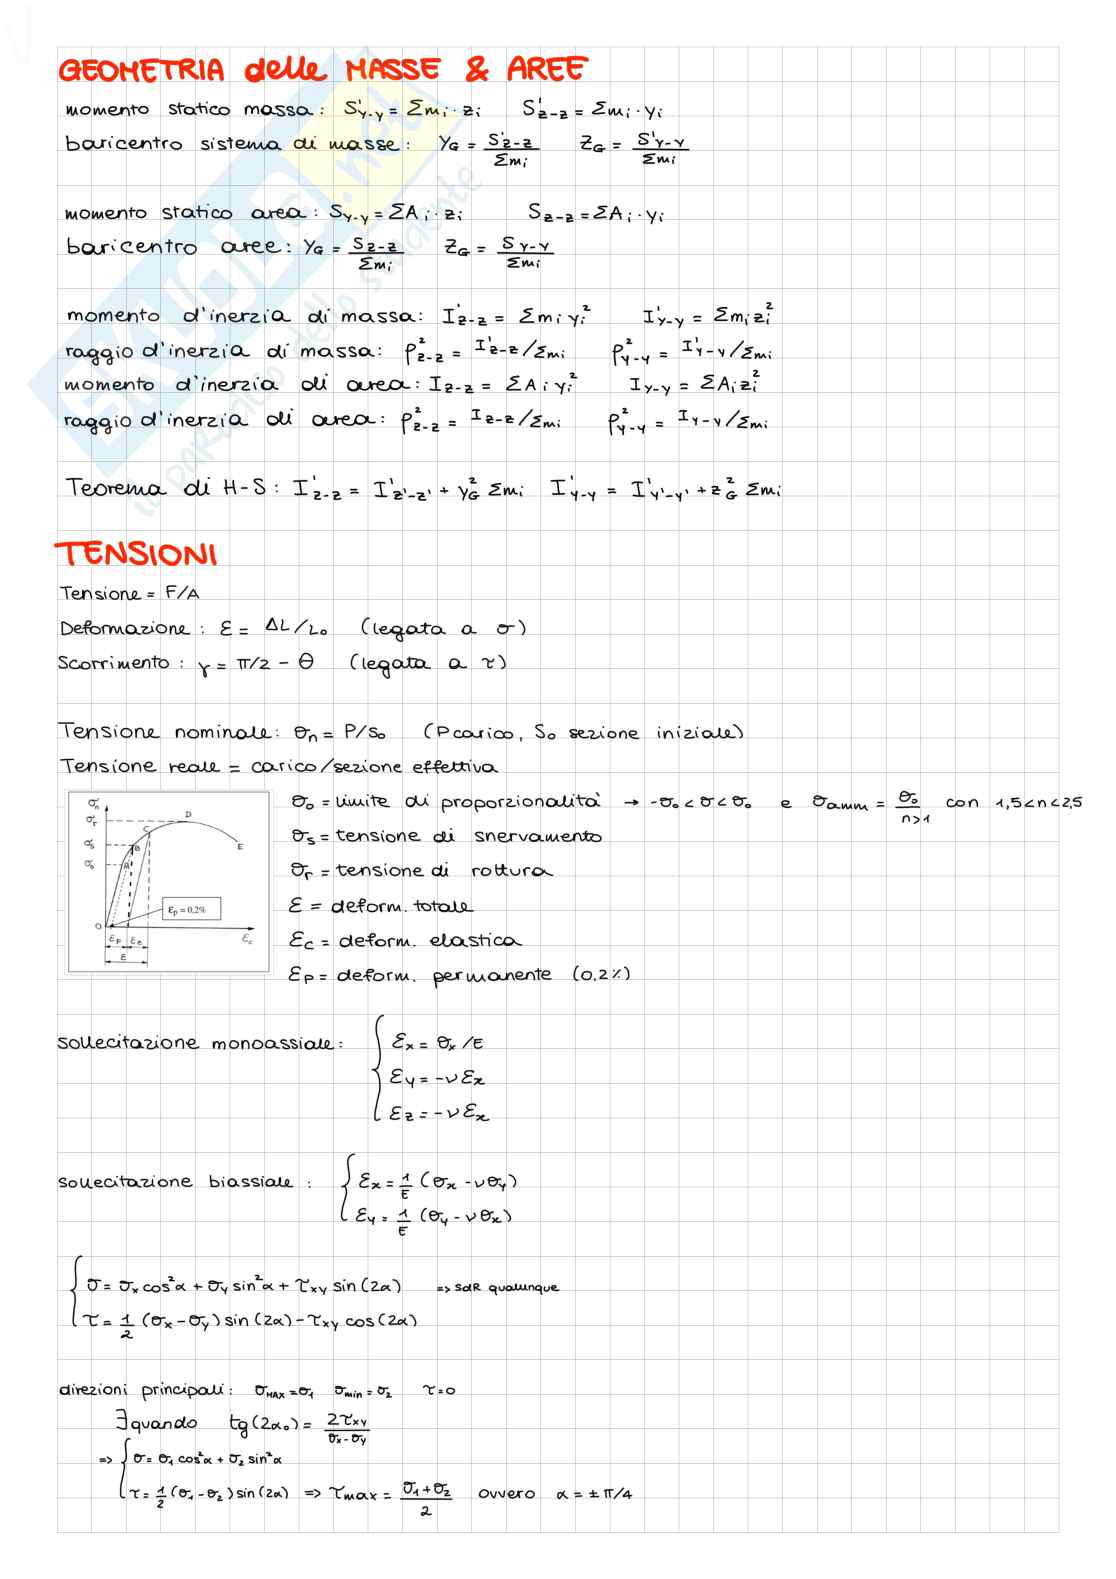 GEOMETRIA delle MASSE & AREE
momento statico massa: S'y-y = Σmi · zi   S'z-z = Σmi · yi
baricentro sistema di masse: YG = S'z-z / Σmi   ZG = S'y-y / Σmi
momento statico area: Sy-y = ΣAi · zi   Sz-z = ΣAi · yi
baricentro aree: YG = Sz-z / Σmi   ZG = Sy-y / Σmi
momento d'inerzia di massa: I'z-z = Σmi yi²   I'y-y = Σmi zi²
raggio d'inerzia di massa: ρ²z-z = I'z-z/Σmi   ρ²y-y = I'y-y/Σmi
momento d'inerzia di area: Iz-z = ΣAi yi²   Iy-y = ΣAi zi²
raggio d'inerzia di area: ρ²z-z = Iz-z/Σmi   ρ²y-y = Iy-y/Σmi
Teorema di H-S: I'z-z = I'z'-z' + yG² Σmi   I'y-y = I'y'-y' + zG² Σmi
TENSIONI
Tensione = F/A
Deformazione: ε = ΔL/L₀ (legata a σ)
Scorrimento: γ = π/2 - θ (legata a τ)
Tensione nominale: σn = P/S₀ (P carico, S₀ sezione iniziale)
Tensione reale = carico/sezione effettiva
σn
σr
σs
σ₀
A
B
C
D
E
O
εp = 0,2%
εp εe
εc
ε
σ₀ = limite di proporzionalità → -σ₀<σ<σ₀ e σamm = σ₀ / n>1 con 1,5<n<2,5
σs = tensione di snervamento
σr = tensione di rottura
ε = deform. totale
εc = deform. elastica
εp = deform. permanente (0.2%)
sollecitazione monoassiale: { εx = σx/E
εy = -νεx
εz = -νεx
sollecitazione biassiale: { εx = 1/E (σx - νσy)
εy = 1/E (σy - νσx)
{ σ = σx cos²α + σy sin²α + τxy sin(2α) => SdR qualunque
τ = 1/2 (σx - σy) sin(2α) - τxy cos(2α)
direzioni principali: σMAX = σ1 σmin = σ2 τ=0
∃ quando tg(2α₀) = 2τxy / σx - σy
=> { σ = σ1 cos²α + σ2 sin²α
τ = 1/2 (σ1 - σ2) sin(2α) => τmax = σ1 + σ2 / 2 ovvero α = ± π/4
SKUOLA.net
il paradiso dello studente